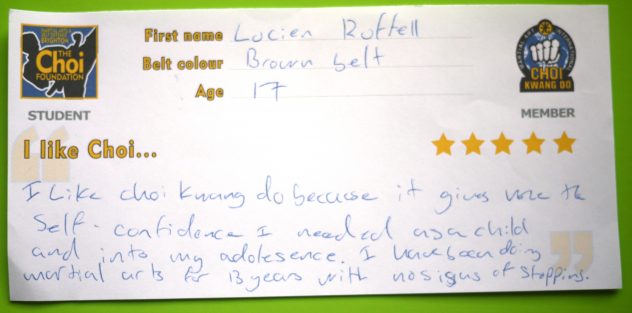 MARTIAL ARTS
BRIGHTON
THE
Choi
FOUNDATION
STUDENT
First name Lucien Ruttell
Belt colour Brown belt
Age 17
CHOI
KWANG DO
MEMBER
I like Choi...
I Like choi kwang do because it gives me the
Self-confidence I needed as a child
and into my adolesence. I have been doing
martial arts for 13 years with no signs of stopping.